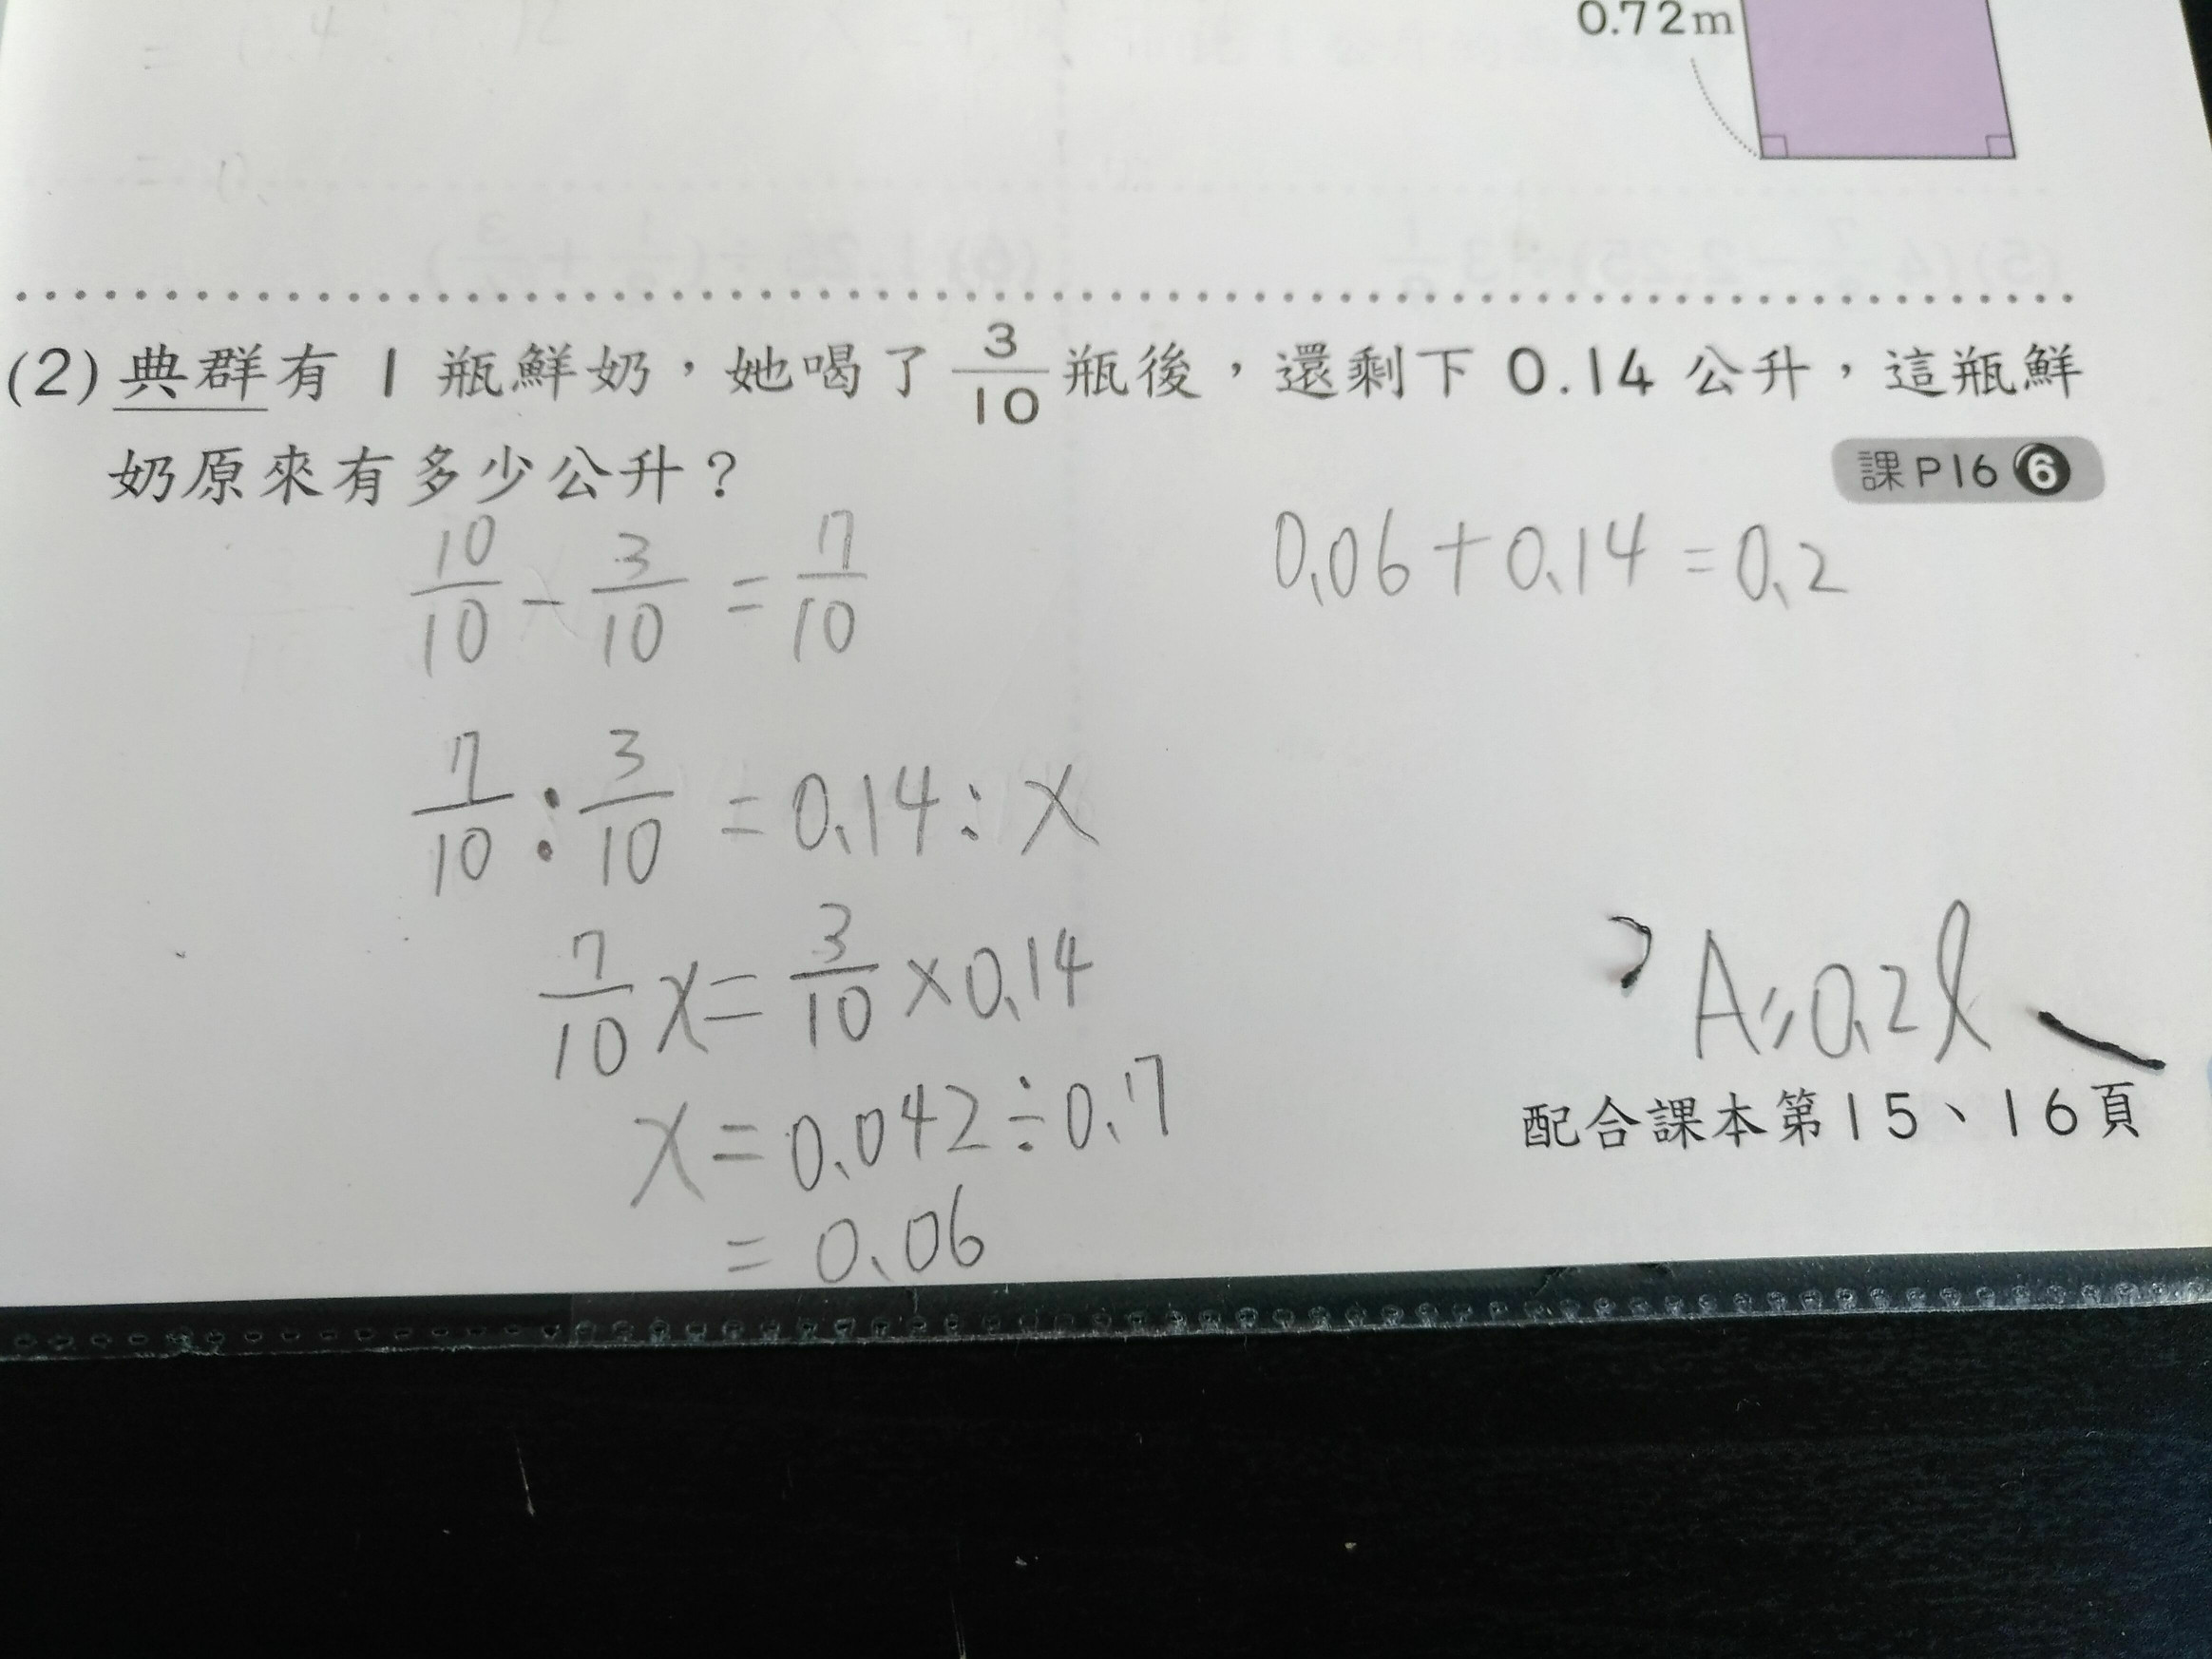 0.72m
(2) 典群有 1 瓶鮮奶，她喝了 3/10 瓶後，還剩下 0.14 公升，這瓶鮮
奶原來有多少公升？
課P16 6
10/10 - 3/10 = 7/10
0.06 + 0.14 = 0.2
7/10 : 3/10 = 0.14 : x
7/10 x = 3/10 × 0.14
x = 0.042 ÷ 0.7
= 0.06
A: 0.2ℓ
配合課本第15、16頁